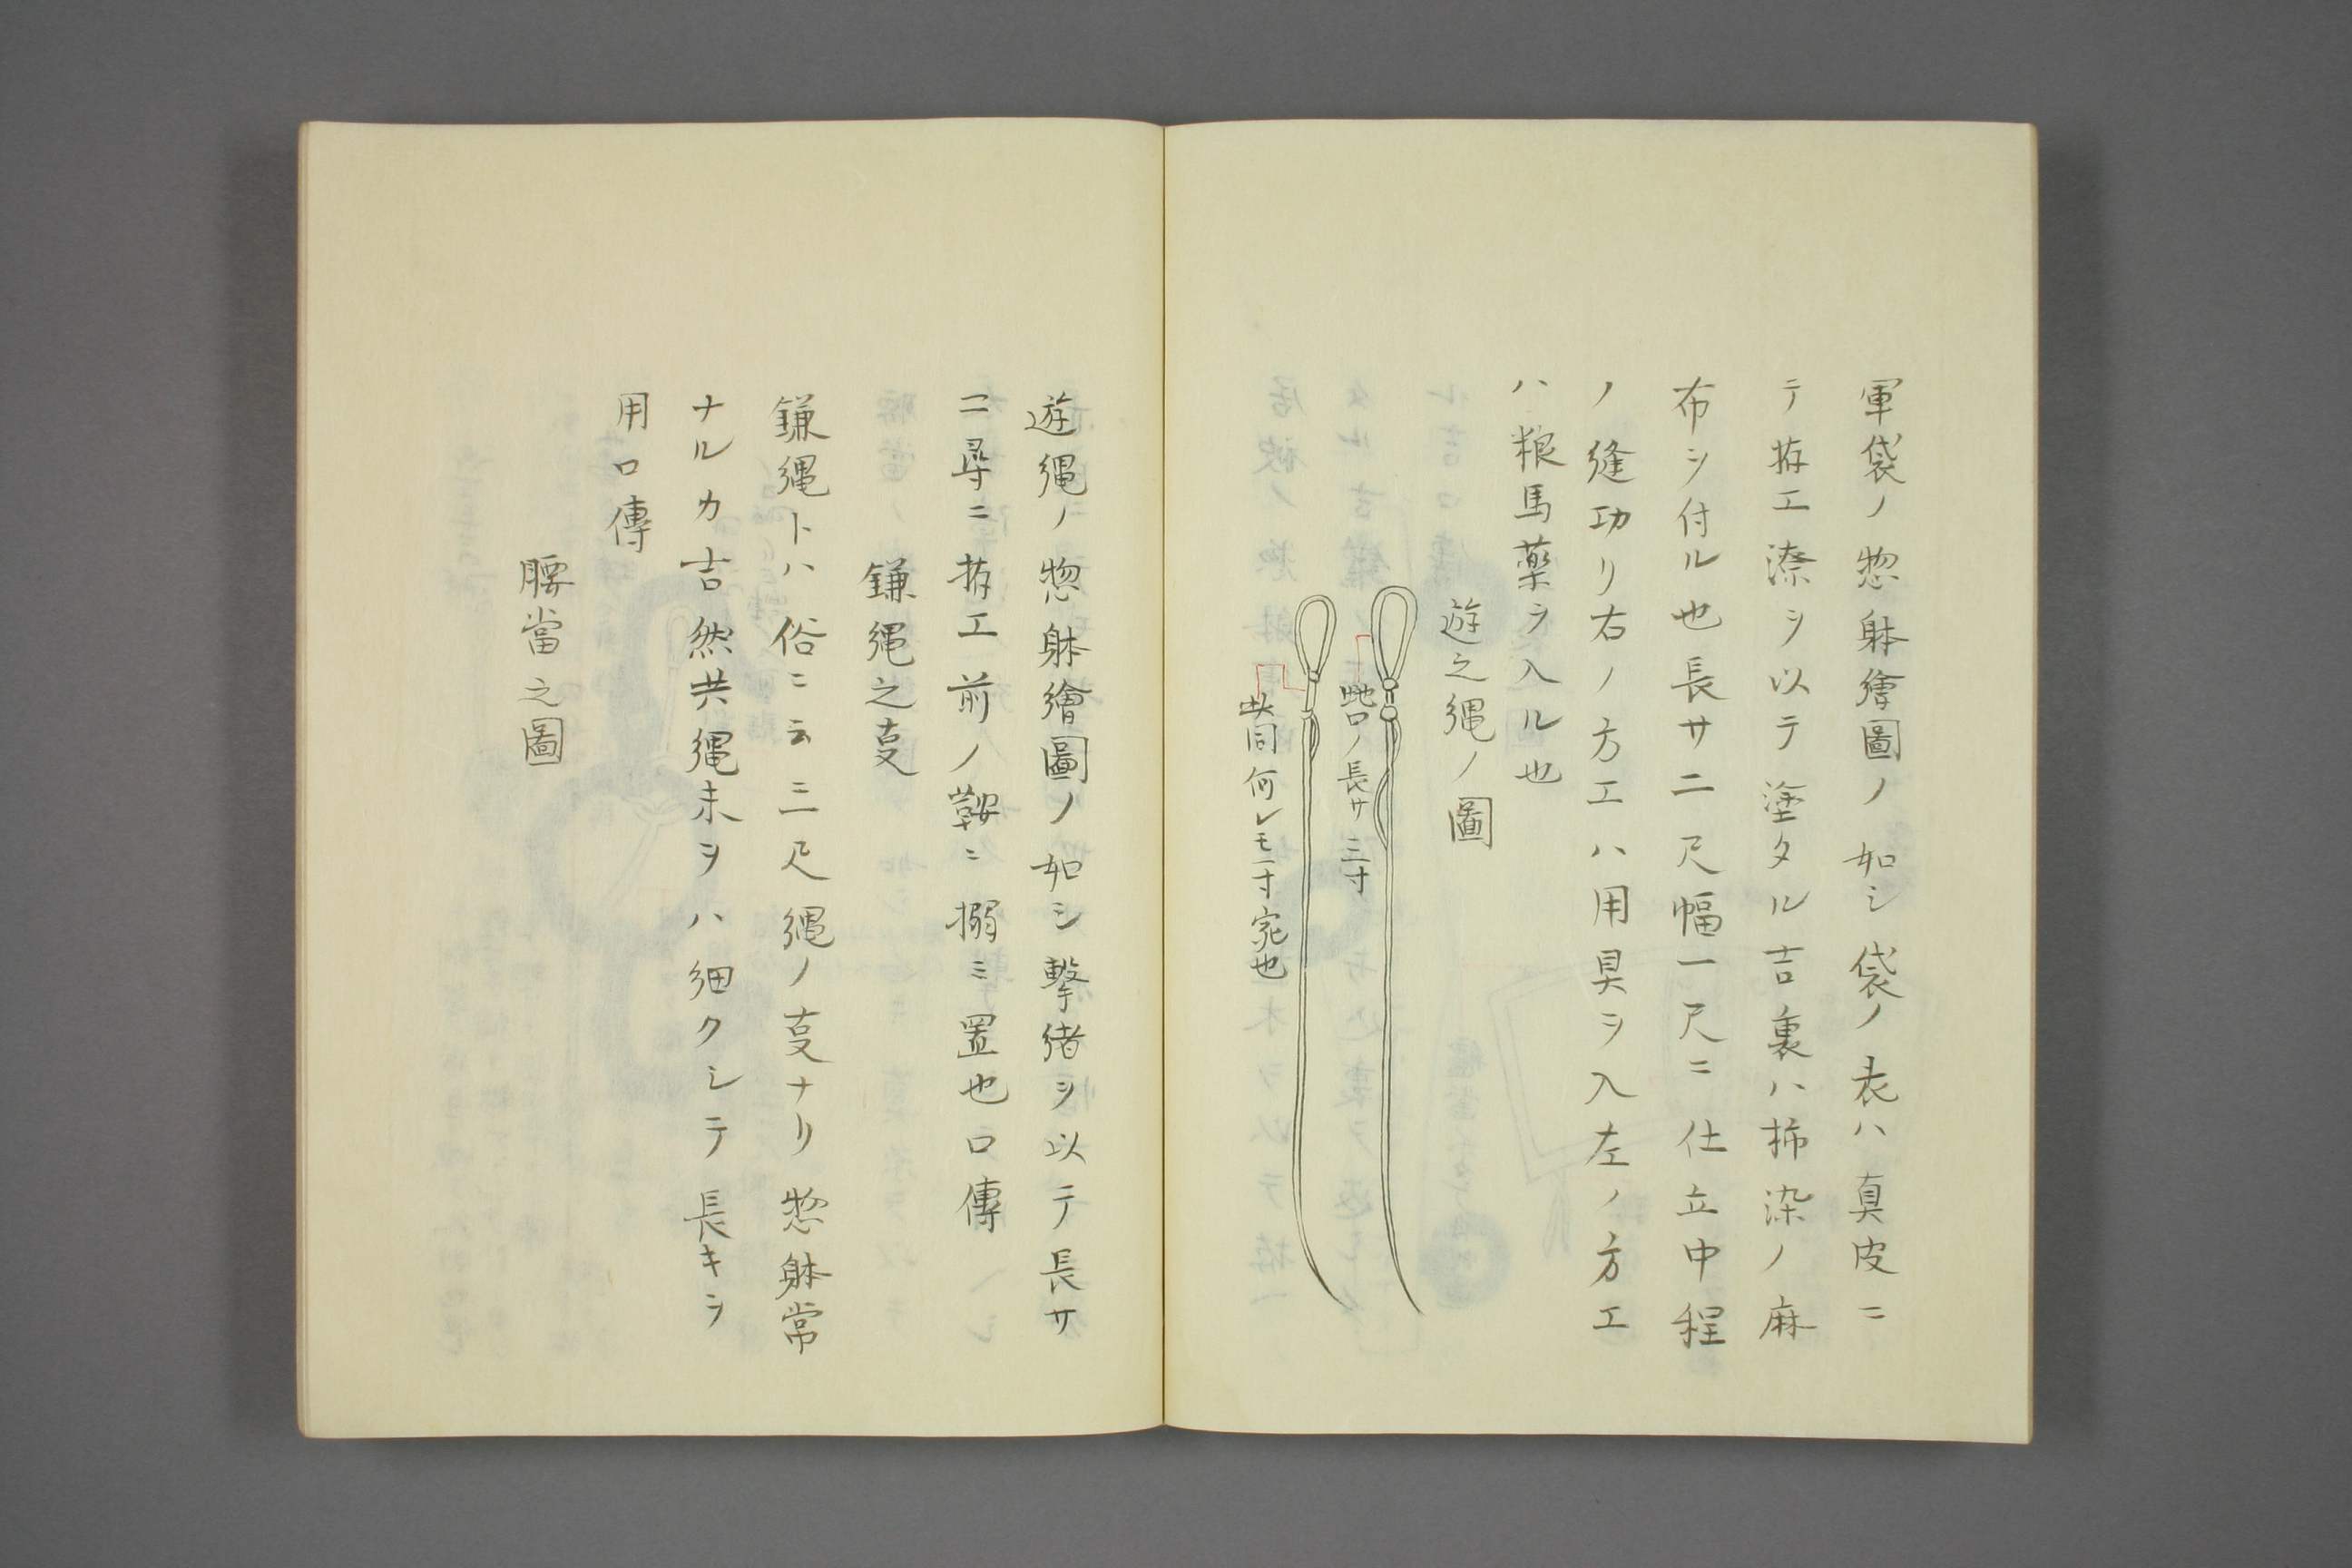 軍袋ノ惣躰繪圖ノ如シ袋ノ表ハ真皮ニ
テ拵エ漆ヲ以テ塗タル吉裏ハ柿染ノ麻
布ヲ付ル也長サ二尺幅一尺ニ仕立中程
ノ縫功リ右ノ方エハ用具ヲ入左ノ方エ
ハ粮馬藥ヲ入ル也
遊之縄ノ圖
此口ノ長サ三寸
此間何レモ一寸宛也
遊縄ノ惣躰繪圖ノ如シ撃緒ヲ以テ長サ
二尋ニ拵エ前ノ鞍ニ搦ミ置也口傳
鎌縄之叓
鎌縄トハ俗ニ云三尺縄ノ叓ナリ惣躰常
ナルカ吉然共縄末ヲハ細クシテ長キヲ
用口傳
腰當之圖